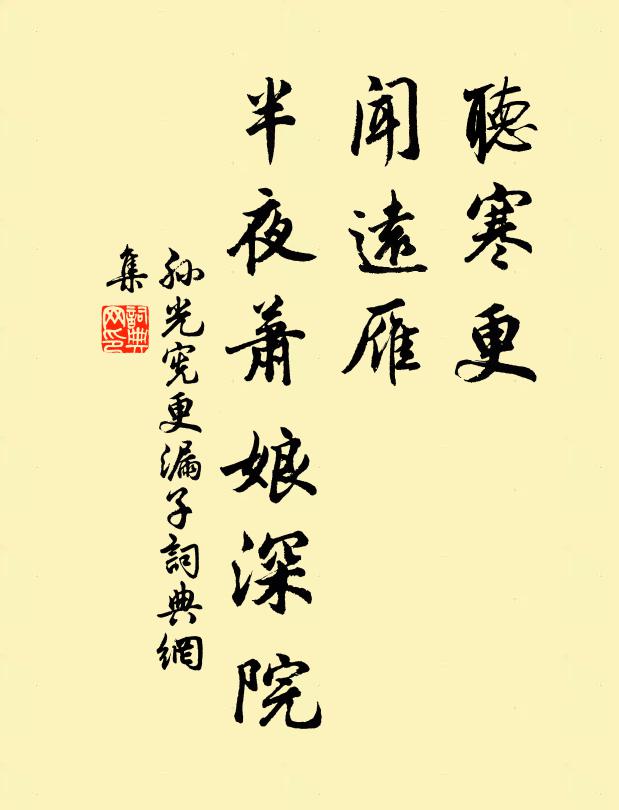 聽寒更
聞遠雁
半夜蕭娘深院
孫光憲更漏子詞典網
集
詞典
网印